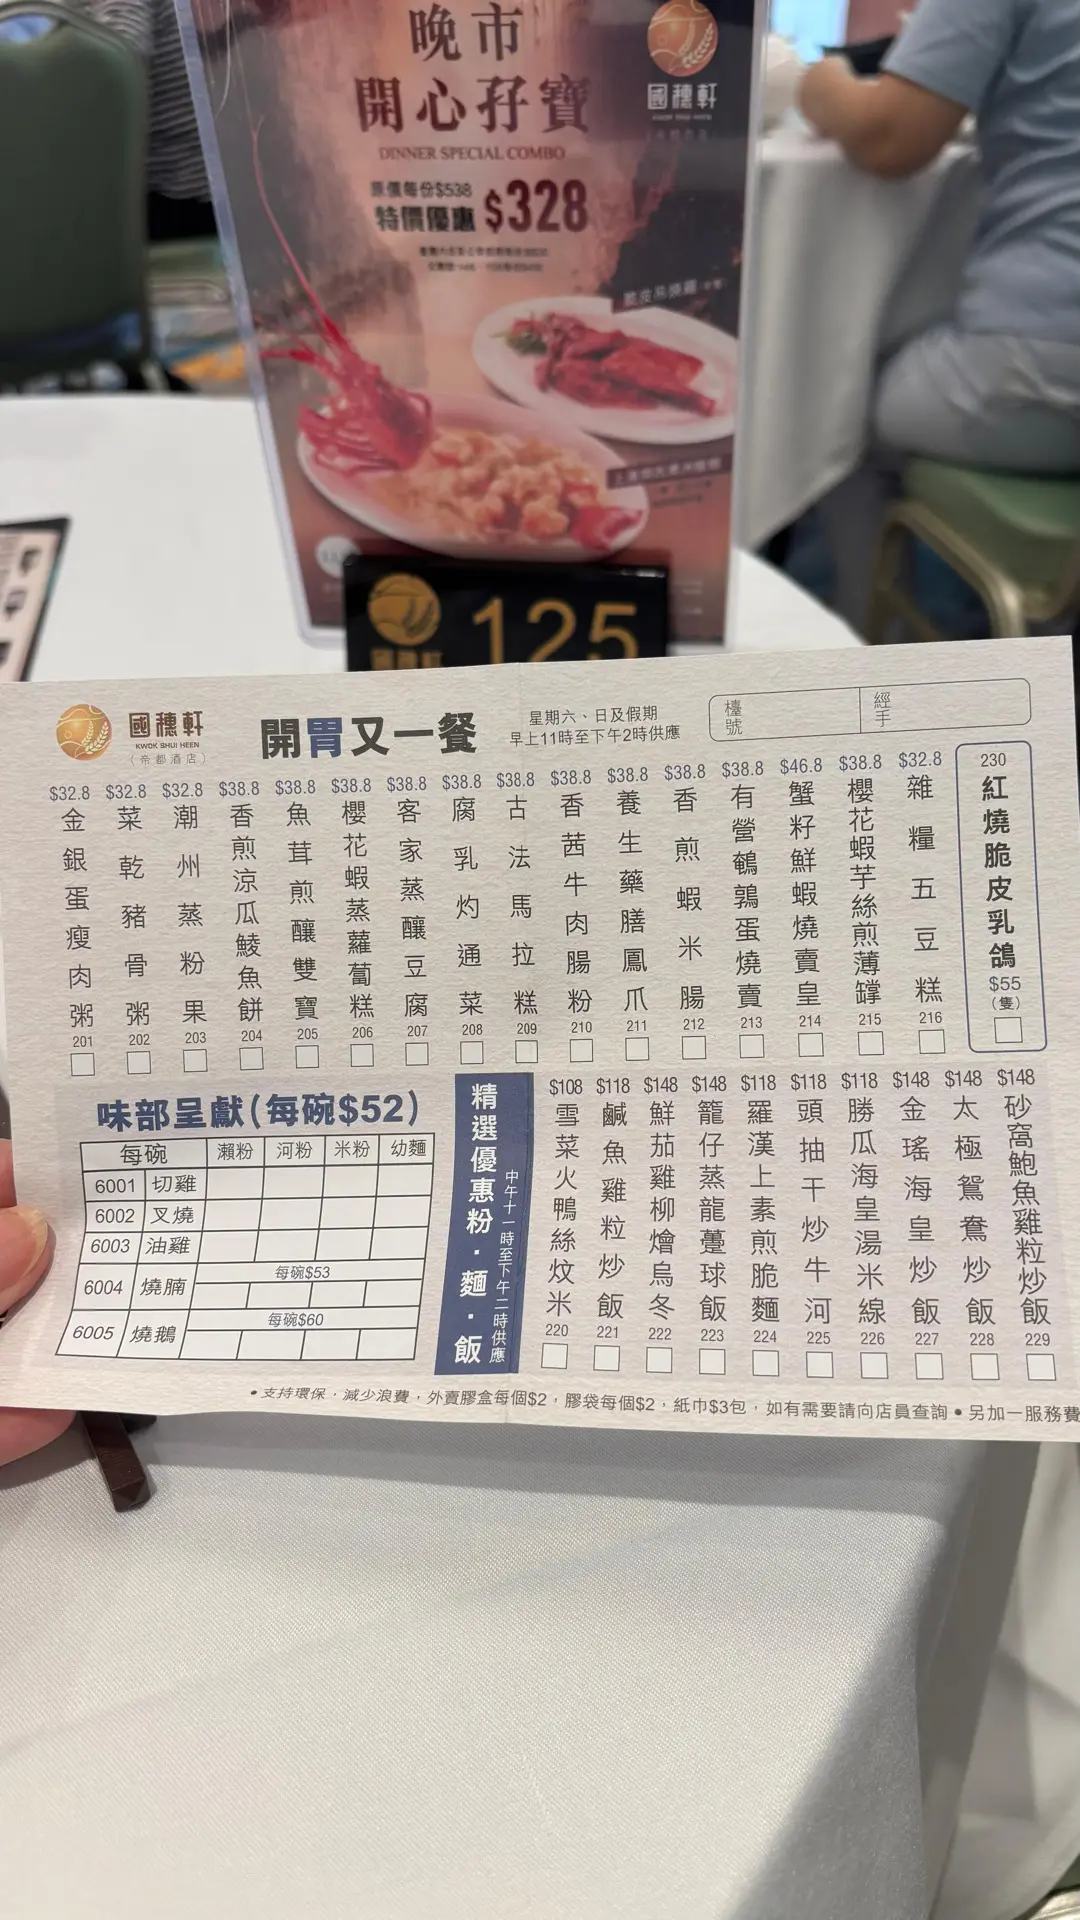 晚市
開心孖寶
DINNER SPECIAL COMBO
原價每份$538
特價優惠 $328
國穗軒
KWOK SHUI HEEN
125
國穗軒
KWOK SHUI HEEN
(帝都酒店)
開胃又一餐
星期六、日及假期
早上11時至下午2時供應
檯號
經手
$32.8 金銀蛋瘦肉粥 201
$32.8 菜乾豬骨粥 202
$32.8 潮州蒸粉果 203
$38.8 香煎涼瓜鯪魚餅 204
$38.8 魚茸煎釀雙寶 205
$38.8 櫻花蝦蒸蘿蔔糕 206
$38.8 客家蒸釀豆腐 207
$38.8 腐乳灼通菜 208
$38.8 古法馬拉糕 209
$38.8 香茜牛肉腸粉 210
$38.8 養生藥膳鳳爪 211
$38.8 香煎蝦米腸 212
$38.8 有營鵪鶉蛋燒賣 213
$46.8 蟹籽鮮蝦燒賣皇 214
$38.8 櫻花蝦芋絲煎薄罉 215
$32.8 雜糧五豆糕 216
230 紅燒脆皮乳鴿 $55 (隻)
味部呈獻(每碗$52)
每碗 瀨粉 河粉 米粉 幼麵
6001 切雞
6002 叉燒
6003 油雞
6004 燒腩 每碗$53
6005 燒鵝 每碗$60
精選優惠粉·麵·飯
中午十一時至下午二時供應
$108 雪菜火鴨絲炆米 220
$118 鹹魚雞粒炒飯 221
$148 鮮茄雞柳燴烏冬 222
$148 籠仔蒸龍躉球飯 223
$118 羅漢上素煎脆麵 224
$118 頭抽干炒牛河 225
$118 勝瓜海皇湯米線 226
$148 金瑤海皇炒飯 227
$148 太極鴛鴦炒飯 228
$148 砂窩鮑魚雞粒炒飯 229
•支持環保，減少浪費，外賣膠盒每個$2，膠袋每個$2，紙巾$3包，如有需要請向店員查詢 •另加一服務費